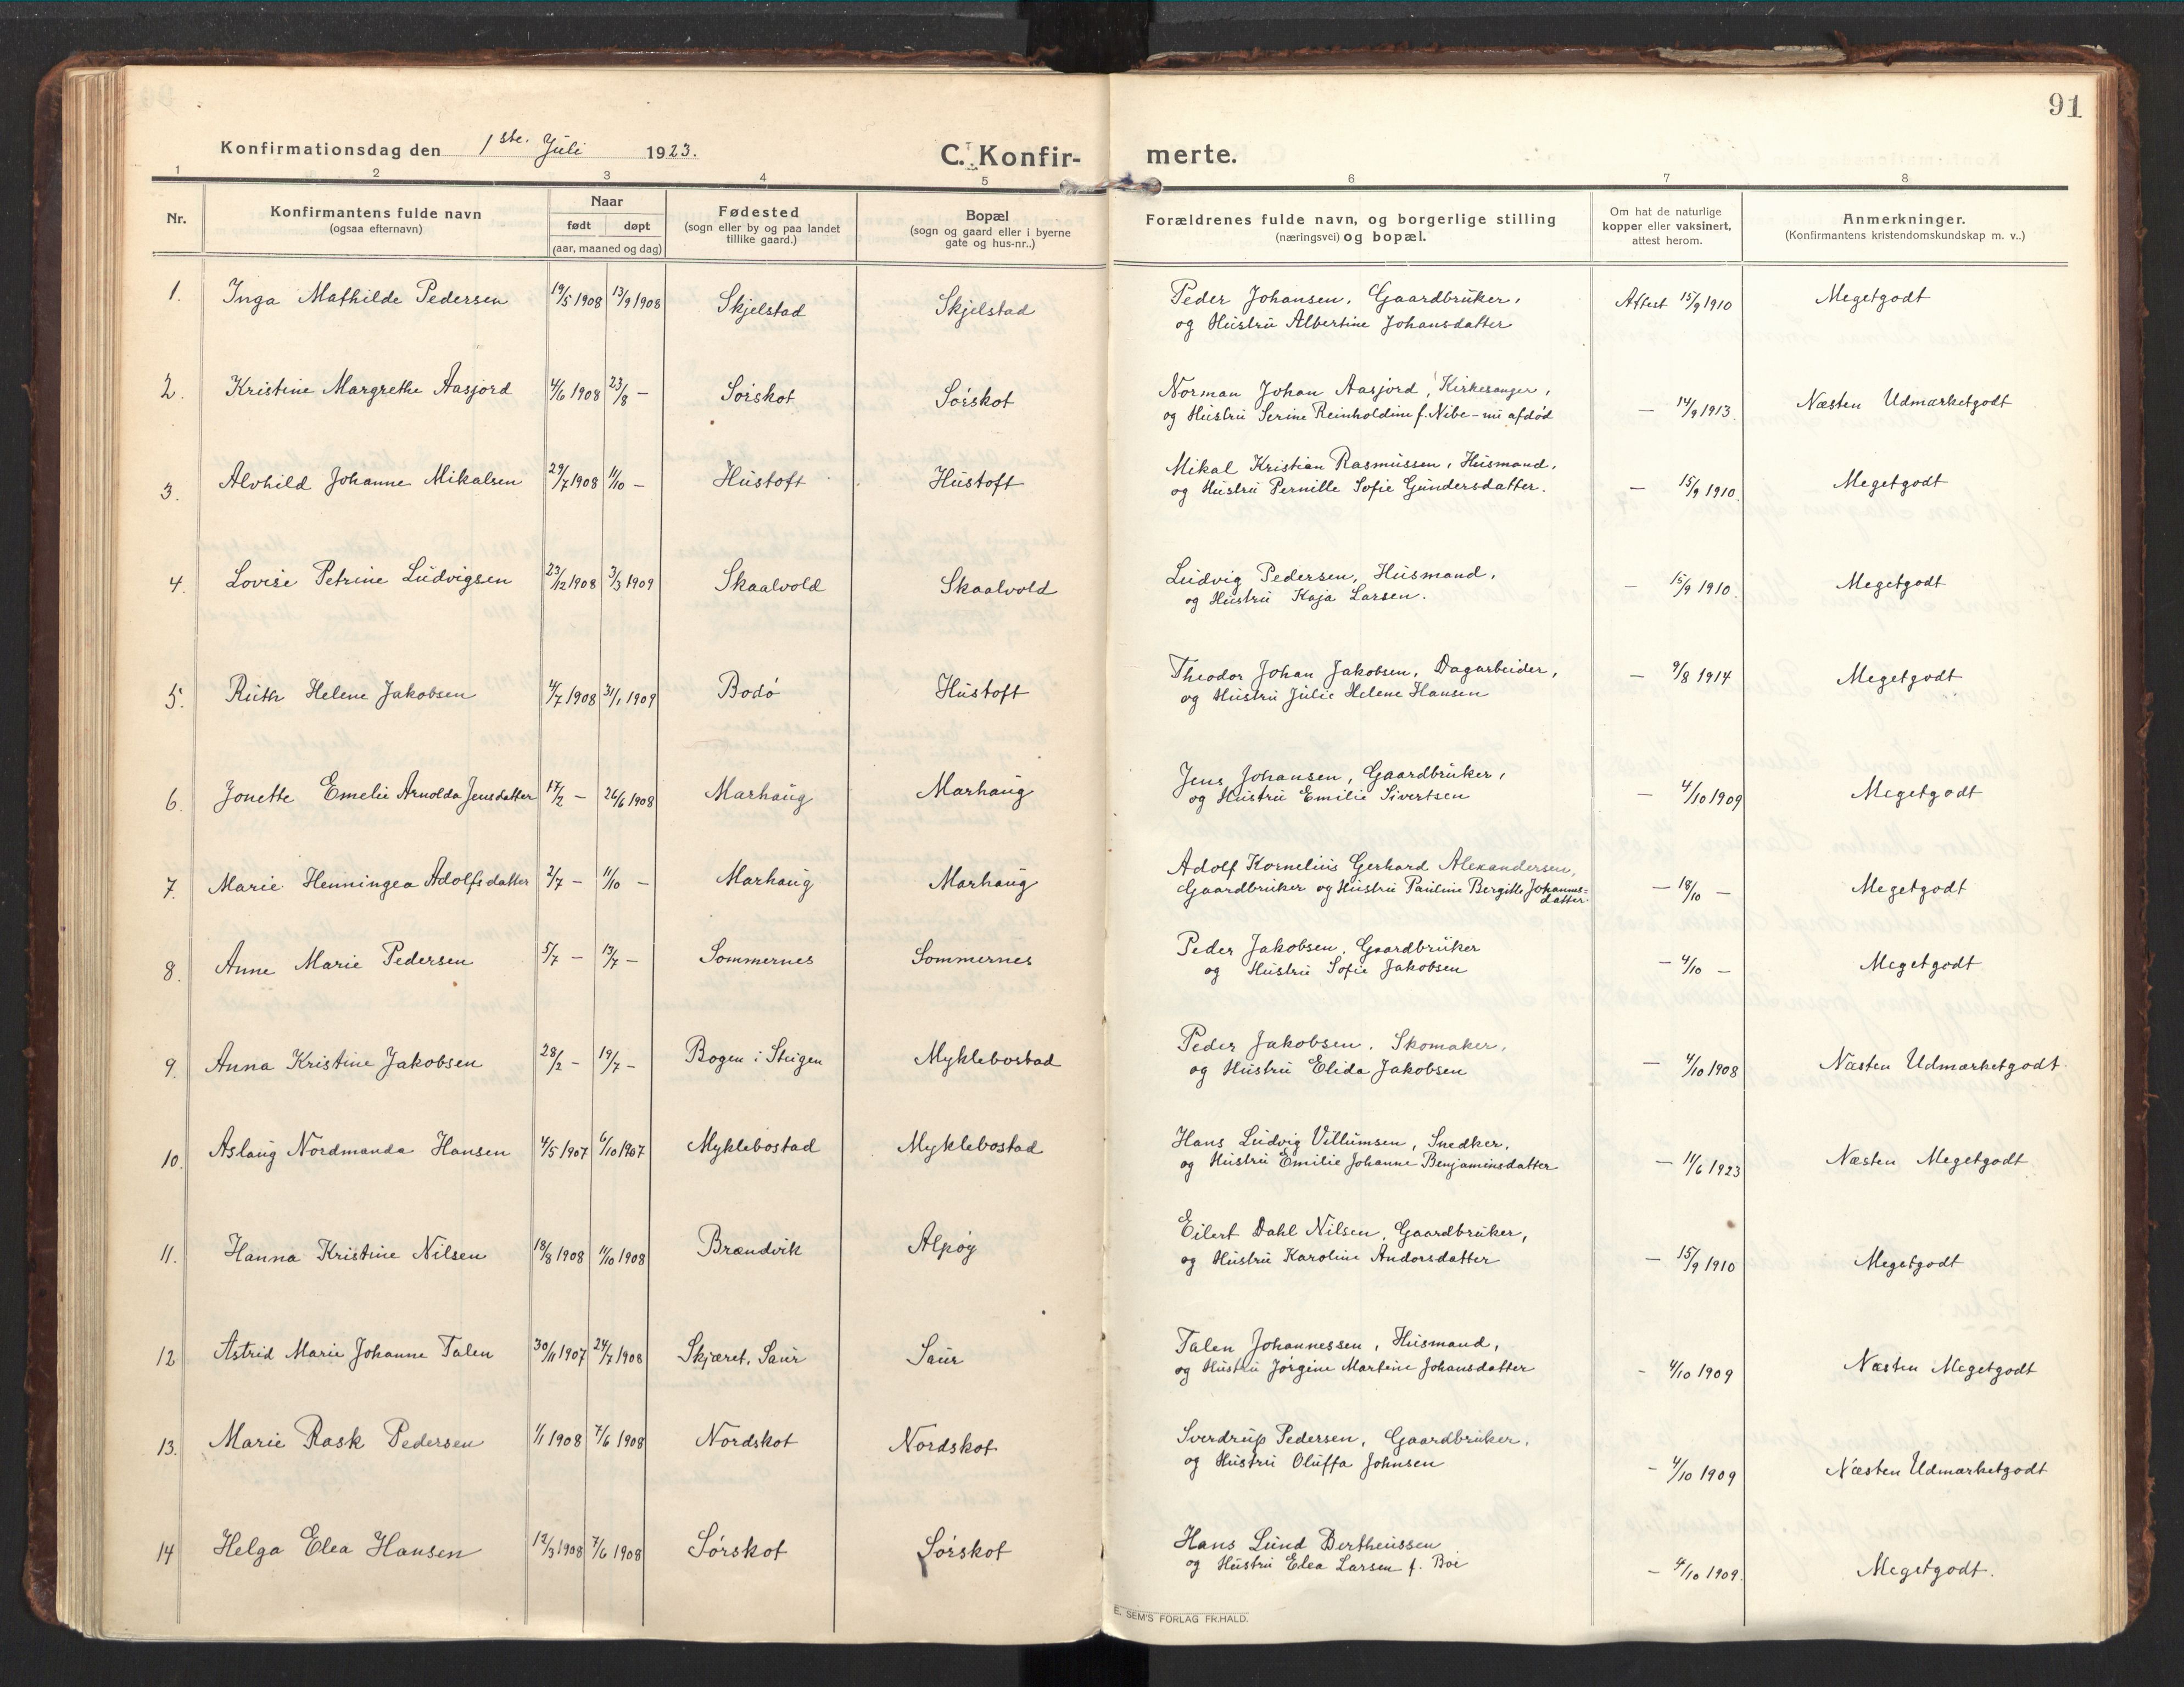 91
Konfirmationsdag den 1ste. Juli 1923.
C. Konfir- merte.
1 2 3 4 5 6 7 8
Nr.
Konfirmantens fulde navn
(ogsaa efternavn)
Naar
født døpt
(aar, maaned og dag)
Fødested
(sogn eller by og paa landet
tillike gaard.)
Bopæl
(sogn og gaard eller i byerne
gate og hus-nr..)
Forældrenes fulde navn, og borgerlige stilling
(næringsvei) og bopæl.
Om hat de naturlige
kopper eller vaksinert,
attest herom.
Anmerkninger.
(Konfirmantens kristendomskundskap m. v..)
1. Inga Mathilde Pedersen 19/5 1908 13/9 1908 Skjelstad Skjelstad Peder Johansen, Gaardbruker, Attest 15/9 1910 Megetgodt
og Hustru Albertine Johansdatter
2. Kristine Margrethe Aasjord 4/6 1908 23/8 — Sørskot Sørskot Norman Johan Aasjord, Kirkesanger, — 14/9 1913. Næsten Udmærketgodt
og Hustru Serine Reinholdine f. Nibe - nu afdød
3. Alvhild Johanne Mikalsen 29/7 1908 11/10 — Hustoft Hustoft Mikal Kristian Rasmussen, Husmand, — 15/9 1910. Megetgodt
og Hustru Pernille Sofie Gundersdatter.
4. Lovise Petrine Ludvigsen 23/12 1908 3/3 1909 Skaalvold Skaalvold Ludvig Pedersen, Husmand, — 15/9 1910. Megetgodt
og Hustru Kaja Larsen.
5. Ruth Helene Jakobsen 4/7 1908 31/1 1909 Bodø Hustoft Theodor Johan Jakobsen, Dagarbeider, — 9/8 1914 Megetgodt
og Hustru Julie Helene Hansen
6. Jonette Emelie Arnolda Jensdatter 17/2 — 26/6 1908 Marhaug Marhaug Jens Johansen, Gaardbruker, — 4/10 1909 Megetgodt
og Hustru Emilie Sivertsen
7. Marie Henningea Adolfsdatter 2/7 — 11/10 — Marhaug Marhaug Adolf Kornelius Gerhard Alexandersen, — 18/10 — Megetgodt
Gaardbruker og Hustru Pauline Bergitte Johannes=
datter.
8. Anne Marie Pedersen 5/7 — 13/7 — Sommernes Sommernes Peder Jakobsen, Gaardbruker — 4/10 — Megetgodt
og Hustru Sofie Jakobsen
9. Anna Kristine Jakobsen 28/2 — 19/7 — Bogen i Steigen Myklebostad Peder Jakobsen, Skomaker, — 4/10 1908 Næsten Udmærketgodt.
og Hustru Elida Jakobsen
10. Aslaug Nordmanda Hansen 4/5 1907 6/10 1907 Myklebostad Myklebostad Hans Ludvig Villumsen, Snedker, — 11/6 1923 Næsten Megetgodt
og Hustru Emilie Johanne Benjaminsdatter
11. Hanna Kristine Nilsen 18/8 1908 11/10 1908 Brændvik Alpøy Eilert Dahl Nilsen, Gaardbruker, — 15/9 1910 Megetgodt
og Hustru Karoline Andorsdatter
12 Astrid Marie Johanne Talen 30/11 1907 24/7 1908 Skjæret, Saur Saur Talen Johannessen, Husmand, - 4/10 1909 Næsten Megetgodt
og Hustru Jørgine Martine Johansdatter
13. Marie Rask Pedersen 1/1 1908 7/6 1908 Nordskot Nordskot Sverdrup Pedersen, Gaardbruker, - 4/10 1909 Næsten Udmærketgodt
og Hustru Oluffa Johnsen
14 Helga Elea Hansen 12/3 1908 7/6 1908 Sørskot Sørskot Hans Lund Bertheussen — 4/10 1909. Megetgodt.
og Hustru Edea Larsen f. Boi
E. SEM'S FORLAG FR.HALD.